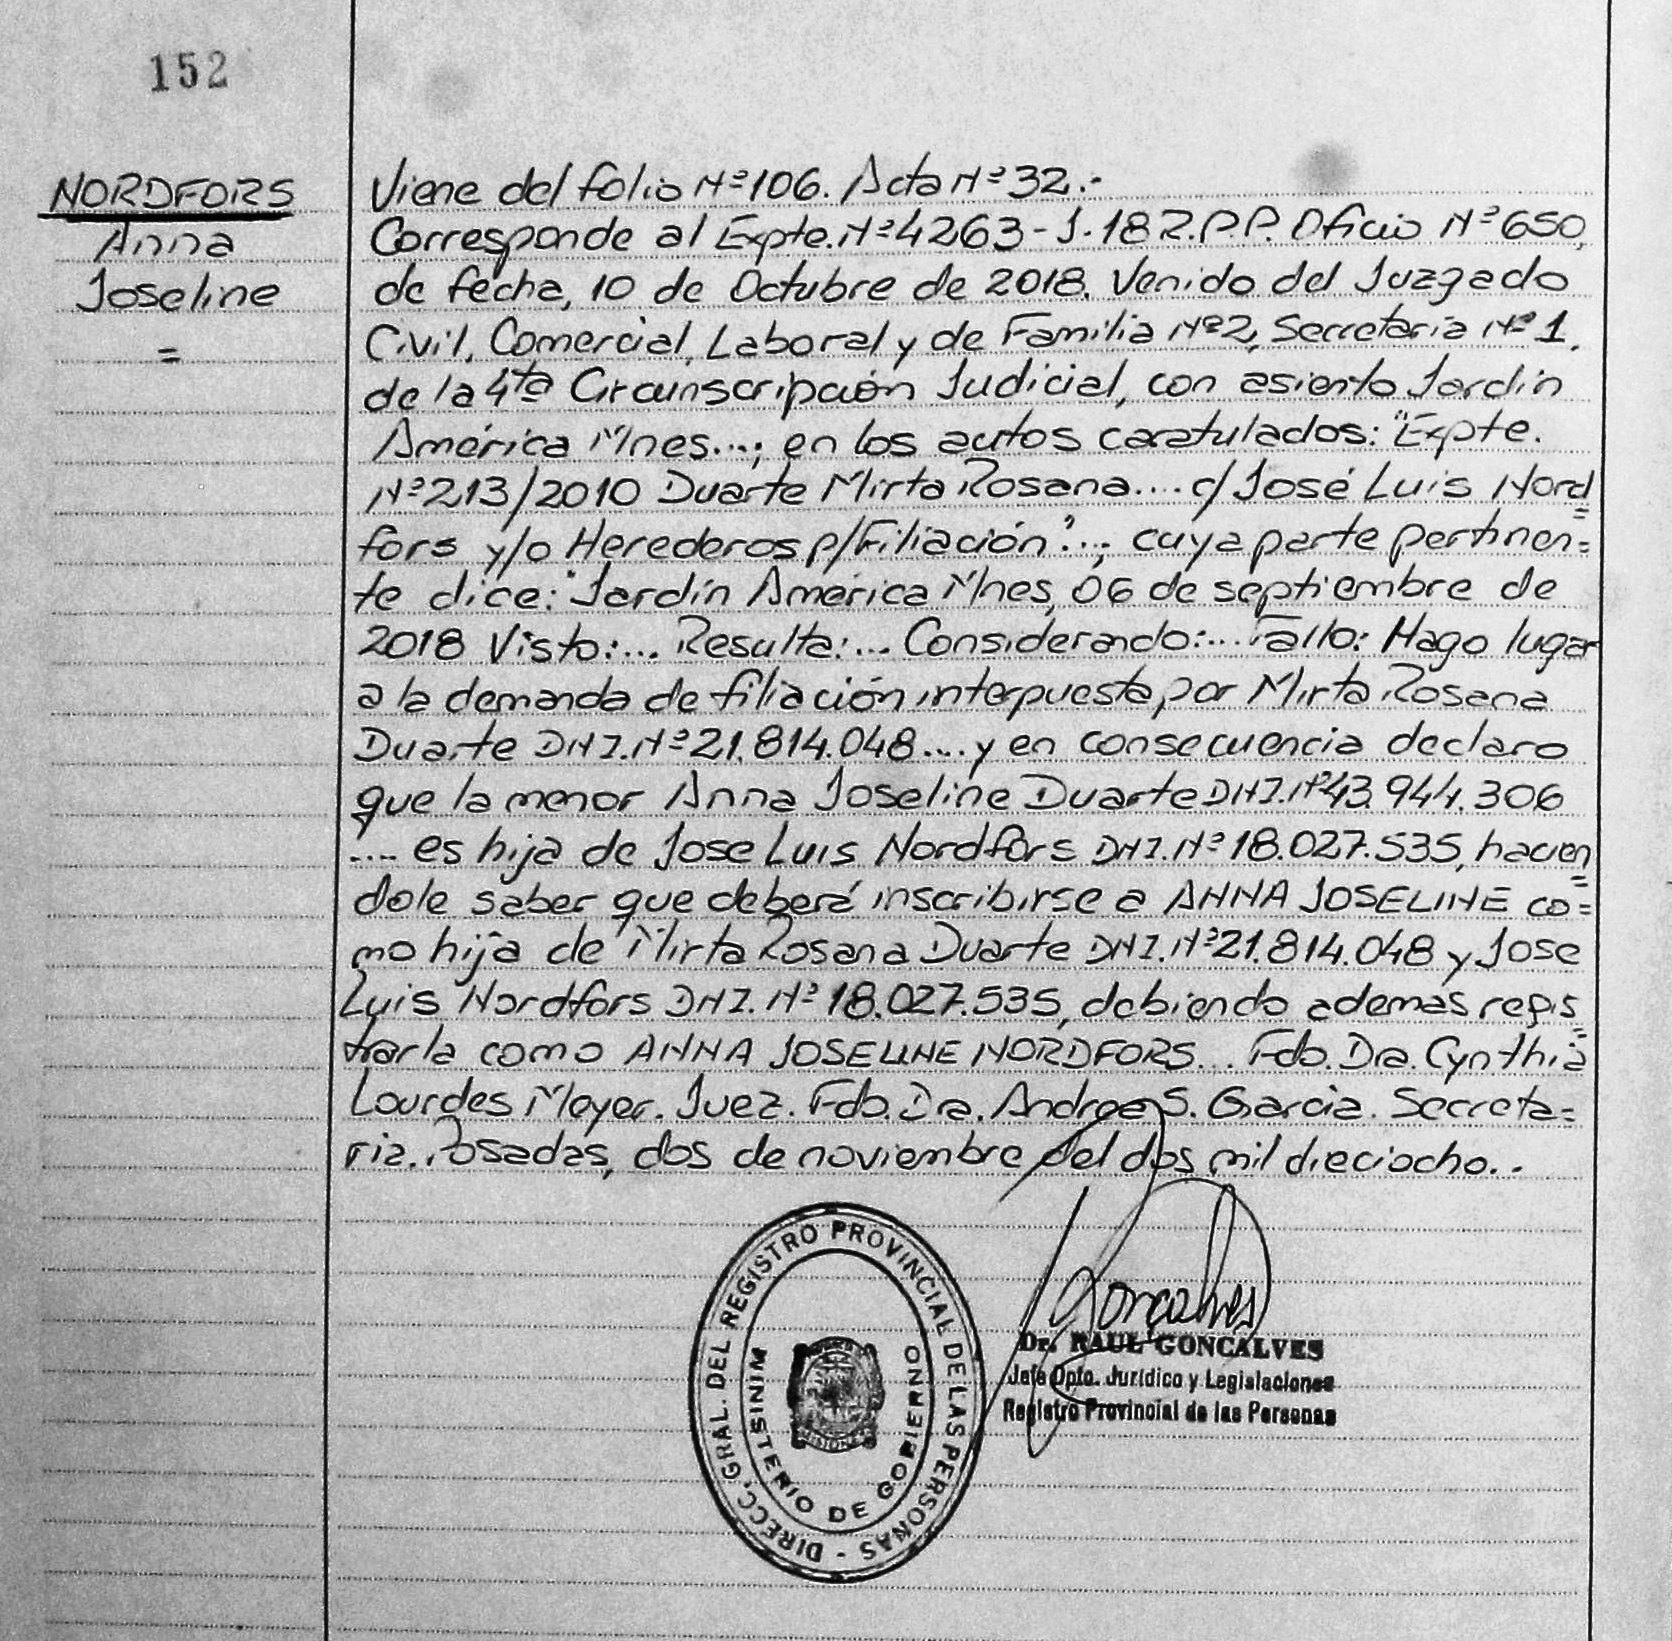 152
NORDFORS
Anna
Joseline
=
Viene del folio Nº 106. Acta Nº 32.-
Corresponde al Expte. Nº 4263-J-18 R.P.P. Oficio Nº 650,
de fecha, 10 de Octubre de 2018. Venido del Juzgado
Civil, Comercial, Laboral y de Familia Nº 2, Secretaria Nº 1.
de la 4ta Circunscripción Judicial, con asiento Jardín
América Mnes...; en los autos caratulados: "Expte.
Nº 213/2010 Duarte Mirta Rosana.... c/ José Luis Nord=
fors y/o Herederos p/Filiación"...; cuya parte pertinen=
te dice: "Jardín América Mnes, 06 de septiembre de
2018 Visto:... Resulta:... Considerando:... Fallo: Hago lugar
a la demanda de filiación interpuesta, por Mirta Rosana
Duarte DNI. Nº 21.814.048.... y en consecuencia declaro
que la menor Anna Joseline Duarte DNI. Nº 43.944.306
.... es hija de Jose Luis Nordfors DNI. Nº 18.027.535, hacien=
dole saber que deberá inscribirse a ANNA JOSELINE co=
mo hija de Mirta Rosana Duarte DNI. Nº 21.814.048 y Jose
Luis Nordfors DNI. Nº 18.027.535, debiendo además regis=
trarla como ANNA JOSELINE NORDFORS... Fdo. Dra. Cynthia
Lourdes Meyer. Juez. Fdo. Dra. Andrea S. Garcia. Secreta=
ria. Posadas, dos de noviembre del dos mil dieciocho..
DIRECC. GRAL. DEL REGISTRO PROVINCIAL DE LAS PERSONAS -
MINISTERIO DE GOBIERNO
MISIONES
Goncalves
Dr. RAUL GONCALVES
Jefe Dpto. Jurídico y Legislaciones
Registro Provincial de las Personas